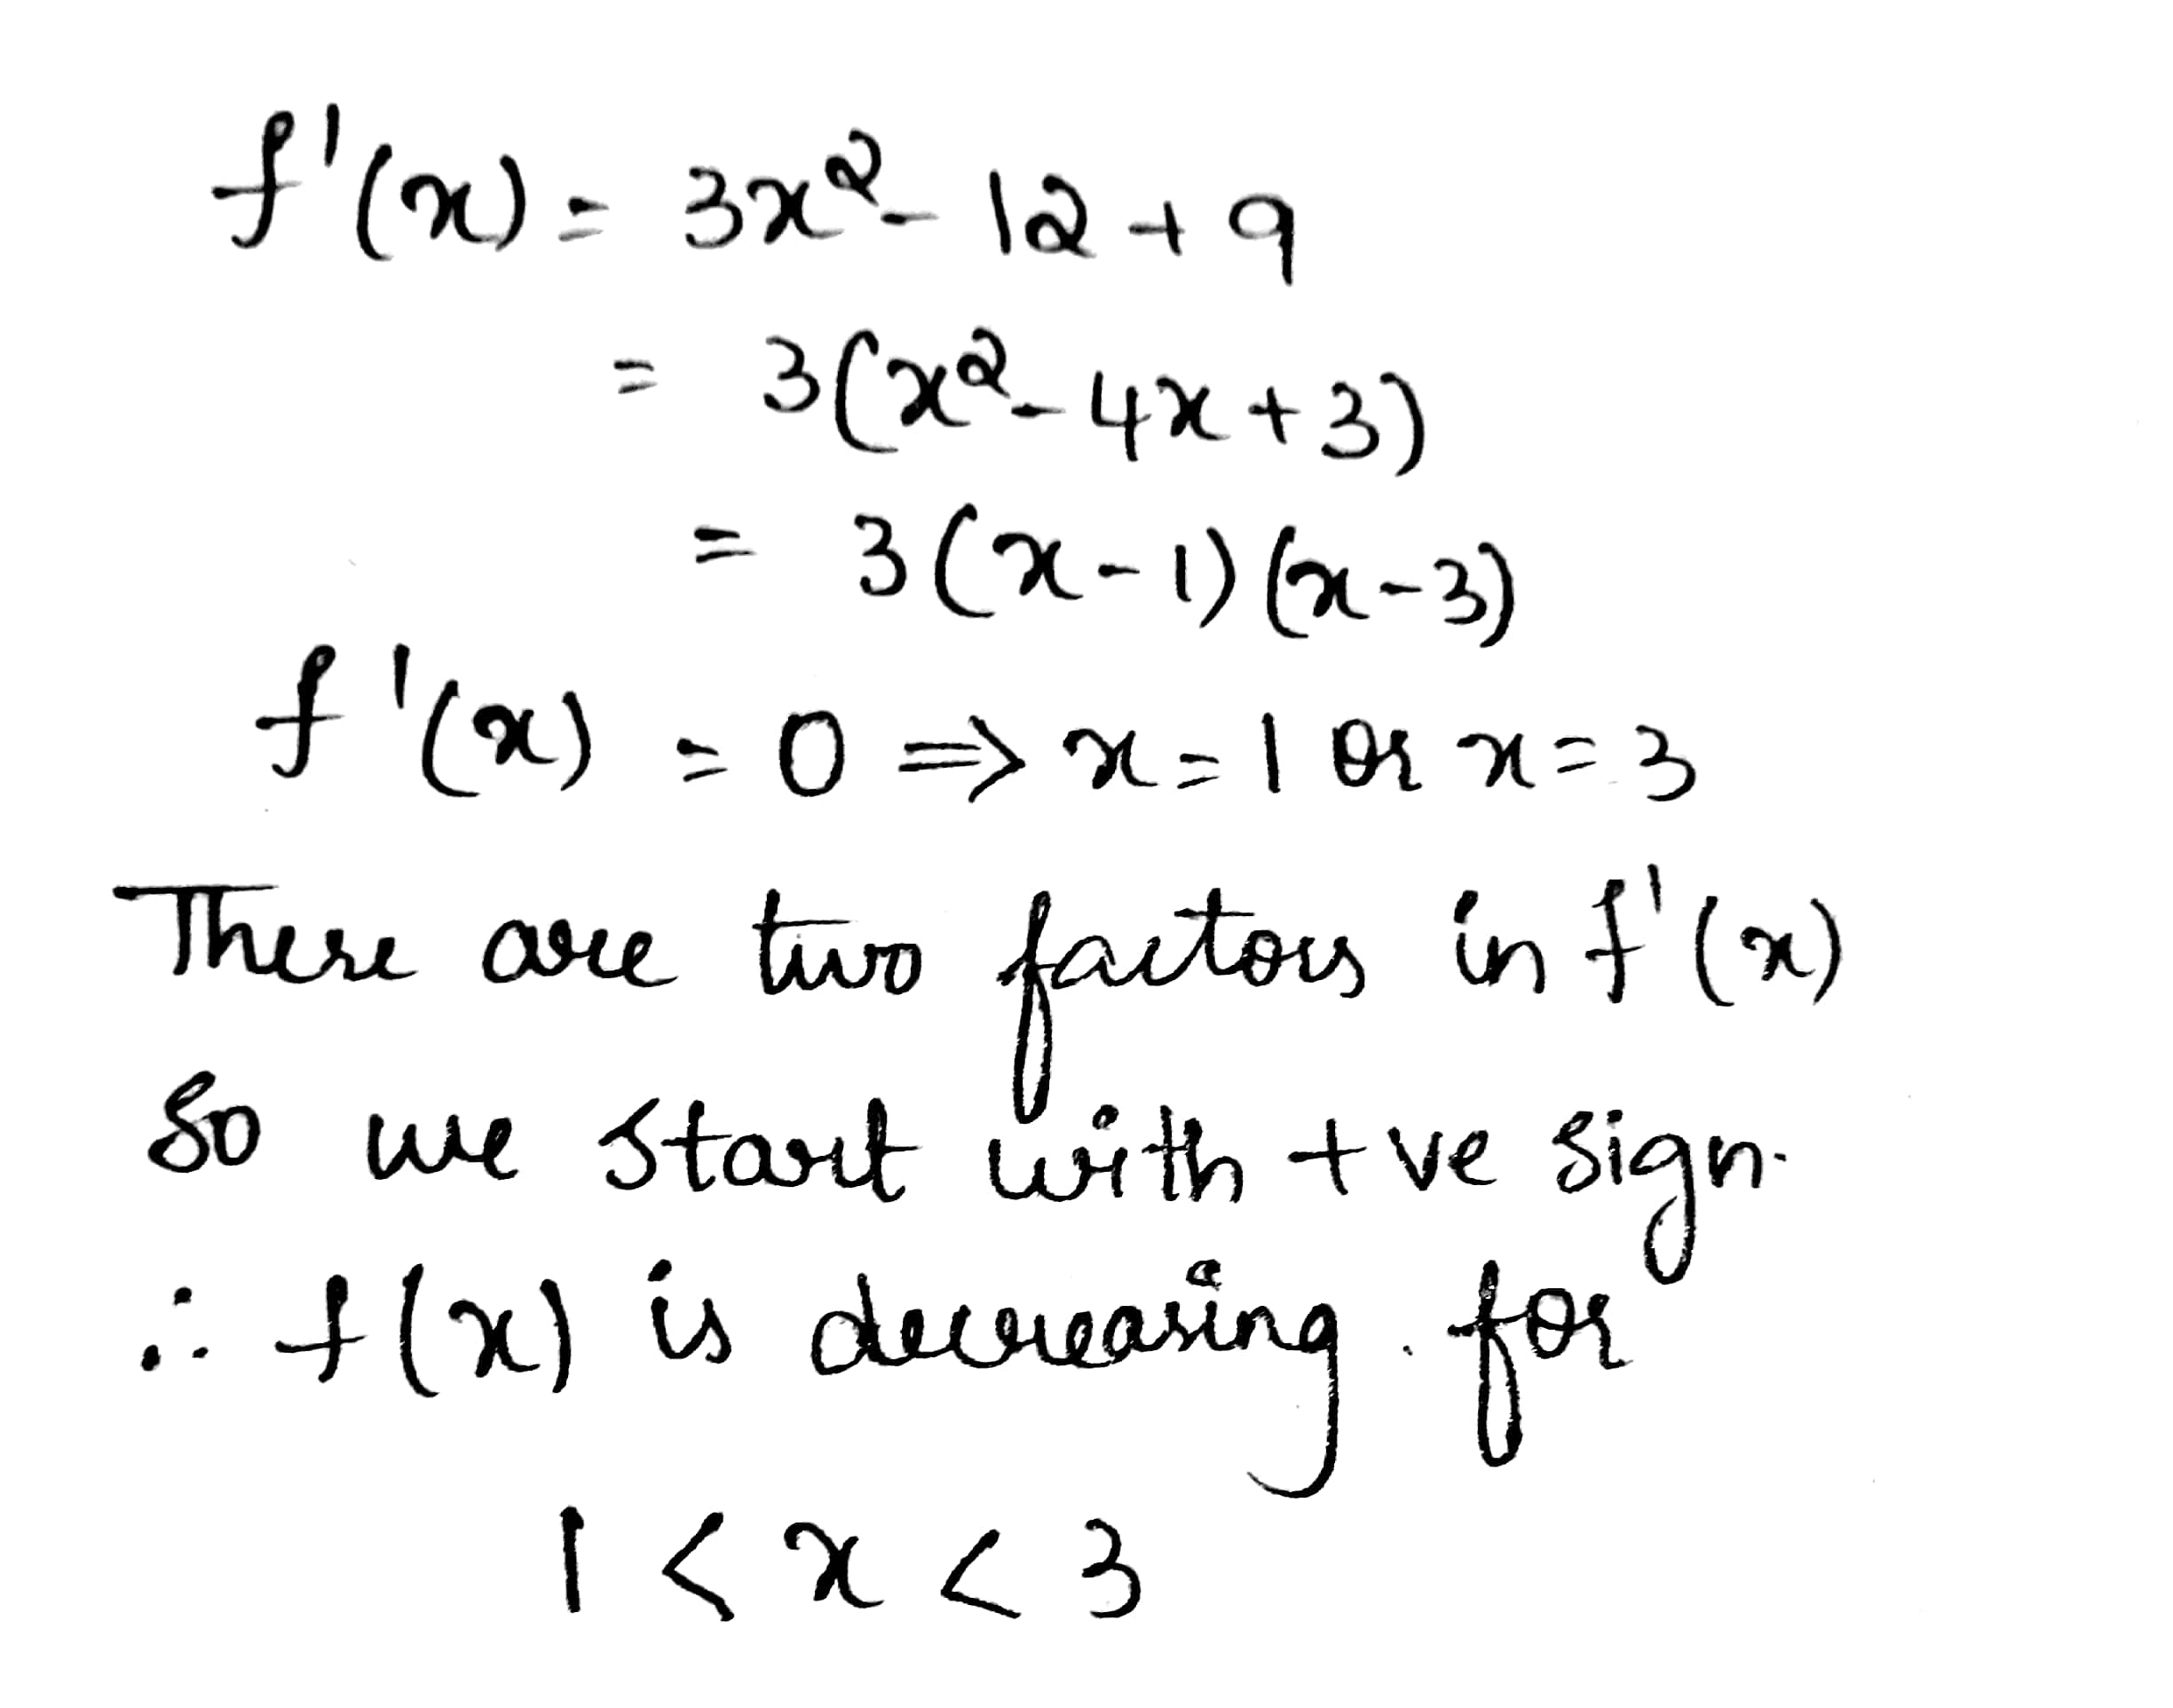 f'(x) = 3x² - 12 + 9
= 3(x² - 4x + 3)
= 3(x - 1)(x - 3)
f'(x) = 0 ⇒ x = 1 or x = 3
There are two factors in f'(x)
So we start with +ve sign.
∴ f(x) is decreasing. for
1 < x < 3